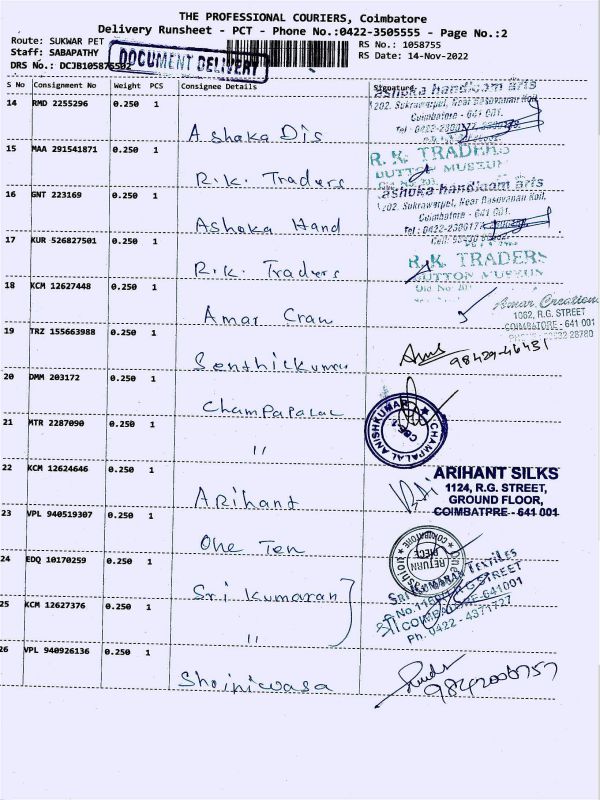 THE PROFESSIONAL COURIERS, Coimbatore
Delivery Runsheet - PCT - Phone No.:0422-3505555 - Page No.:2
Route: SUKWAR PET
RS No.: 1058755
Staff: SABAPATHY
RS Date: 14-Nov-2022
DRS No.: DCJB105875
DOCUMENT DELIVERY
S No Consignment No Weight PCS Consignee Details Signature
14 RMD 2255296 0.250 1 Ashaka Dis
ashoka handloom arts
202, Sukrawarpet, Near Basavanan Koil,
Coimbatore - 641 001.
15 MAA 291541871 0.250 1 R.K. Traders
R. K. TRADERS
BUTTON MUSEUM
16 GNT 223169 0.250 1 Ashaka Hand
ashoka handloom arts
202, Sukrawarpet, Near Basavanan Koil,
Coimbatore - 641 001.
17 KUR 526827501 0.250 1 R.K. Traders
R. K. TRADERS
BUTTON MUSEUM
18 KCM 12627448 0.250 1 Amar Cran
Amar Creation
1082, R.G. STREET
COIMBATORE - 641 001
19 TRZ 155663988 0.250 1 Senthilkumar
98429-46431
20 DMM 203172 0.250 1 Champapalal
CHAMPALAL ANISHKUMAR
CBE-1
21 MTR 2287090 0.250 1 "
22 KCM 12624646 0.250 1 Arihant
ARIHANT SILKS
1124, R.G. STREET,
GROUND FLOOR,
COIMBATPRE - 641 001
23 VPL 940519307 0.250 1 One Ten
RETURN
PIECE
COIMBATORE
24 EDQ 10170259 0.250 1 Sri Kumaran
SRI KUMARAN TEXTILES
STREET
COIMBATORE-641001
Ph: 0422 - 4371727
25 KCM 12627376 0.250 1 "
26 VPL 940926136 0.250 1 Shriniwasa